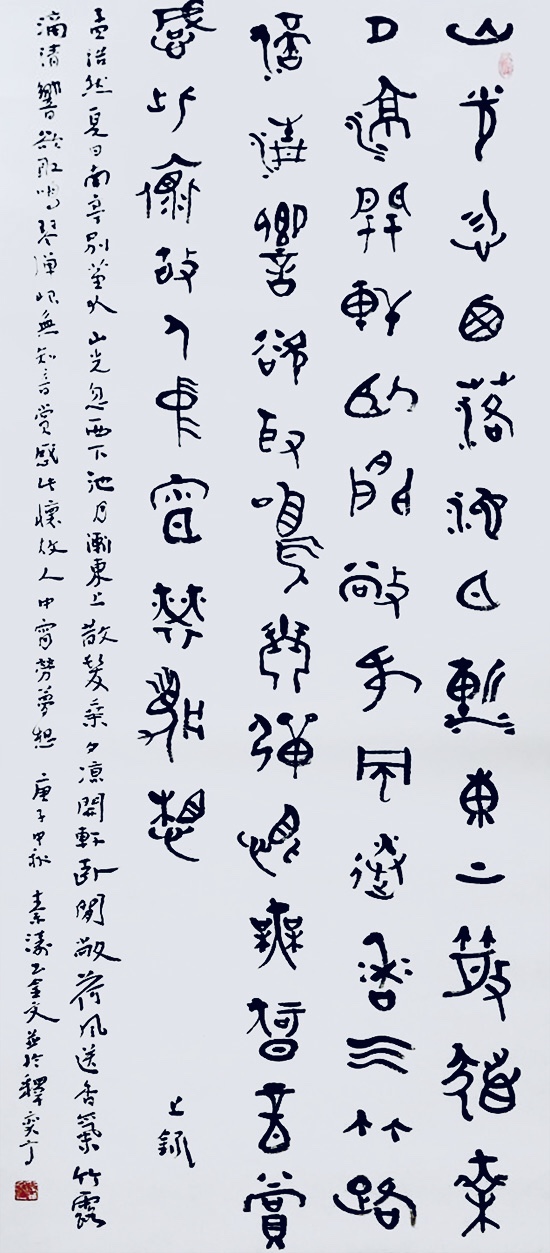 山光忽西落池月漸東上散髮乘
夕涼開軒臥閒敞荷風送香氣竹露
滴清響欲取鳴琴彈恨無知音賞
感此懷故人中宵勞夢想
上錄
孟浩然夏日南亭別董大山光忽西下池月漸東上散髮乘夕涼開軒臥閒敞荷風送香氣竹露
滴清響欲取鳴琴彈恨無知音賞感此懷故人中宵勞夢想 庚子 素濤 金文並 釋